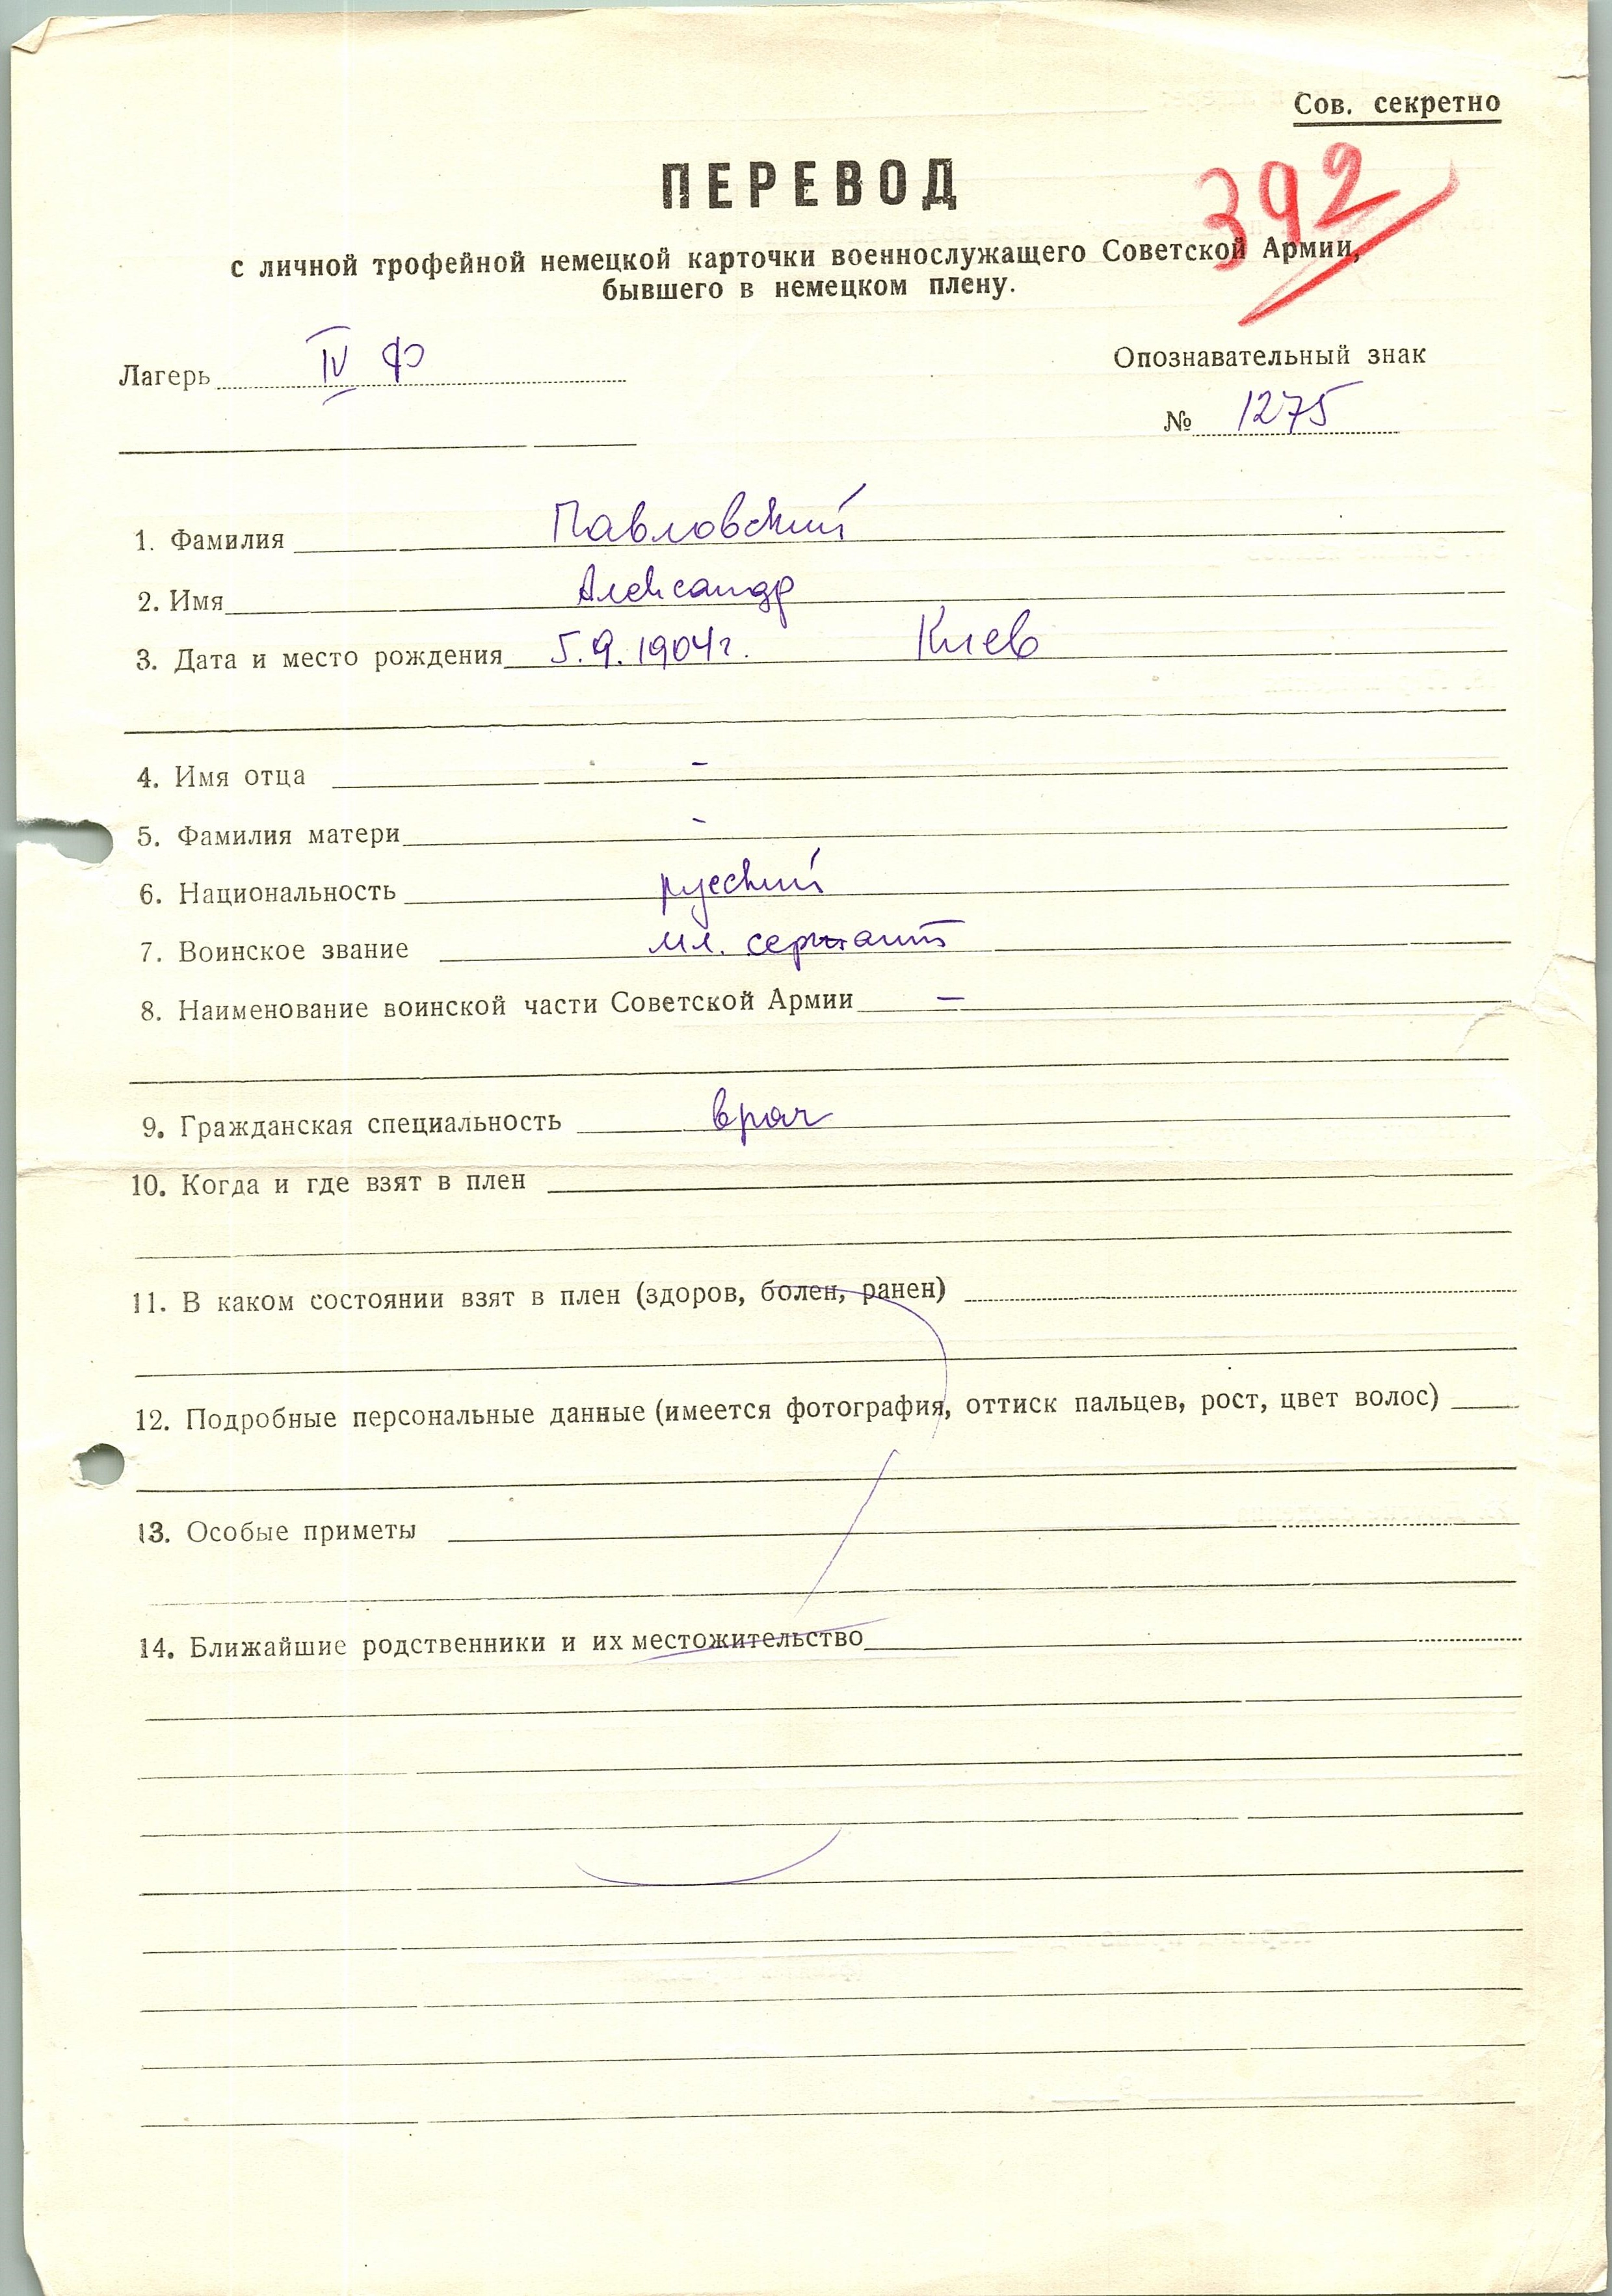 Сов. секретно
392
ПЕРЕВОД
с личной трофейной немецкой карточки военнослужащего Советской Армии,
бывшего в немецком плену.
Лагерь IV Ф
Опознавательный знак
№ 1275
1. Фамилия Павловский
2. Имя Александр
3. Дата и место рождения 5.9.1904г. Киев
4. Имя отца -
5. Фамилия матери -
6. Национальность русский
7. Воинское звание мл. сержант
8. Наименование воинской части Советской Армии —
9. Гражданская специальность врач
10. Когда и где взят в плен
11. В каком состоянии взят в плен (здоров, болен, ранен)
12. Подробные персональные данные (имеется фотография, оттиск пальцев, рост, цвет волос)
13. Особые приметы
14. Ближайшие родственники и их местожительство